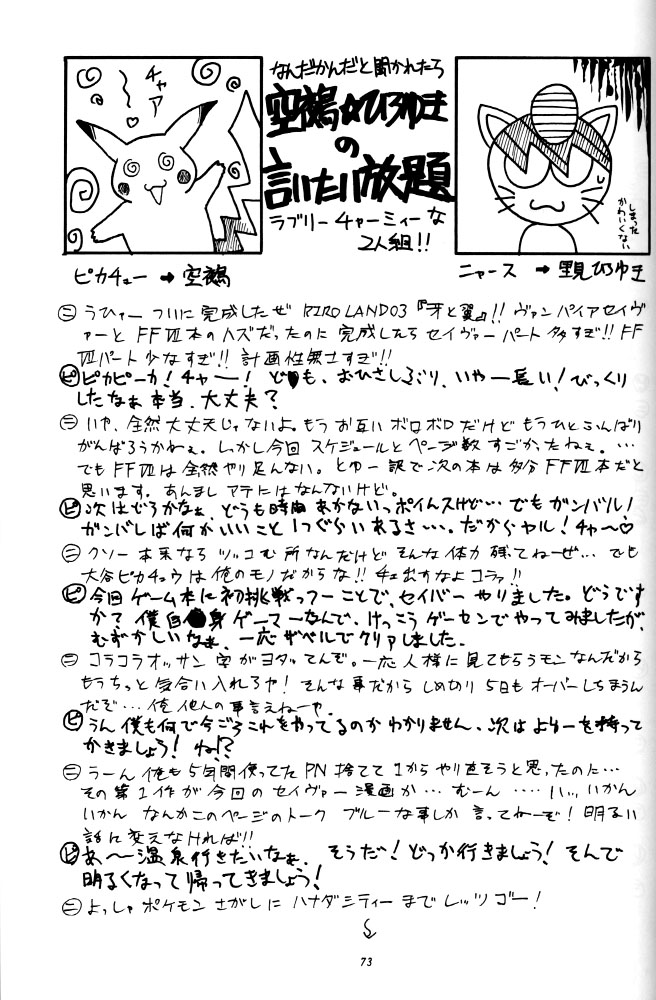 なんだかんだと聞かれたら
空鵺☆ひろゆき
の
言いたい放題
ラブリーチャーミィーな
2人組!!
チャア
〜
♡
しまった
かわいくない
ピカチュー → 空鵺
ニャース → 里見ひろゆき
㊁ うひゃー ついに完成したぜ RIROLAND03『牙と翼』!! ヴァンパイアセイヴ
ァーと FFⅦ本のハズだったのに 完成したら セイヴァーパート多すぎ!! FF
Ⅶパート少なすぎ!! 計画性無さすぎ!!
ピ ピカピーカ! チャー! ど♥も、おひさしぶり、いやー長い! びっくり
したなぁ本当、大丈夫?
ニ いや、全然大丈夫じゃないよ。もうお互いボロボロだけどもうひとふんばり
がんばろうかねぇ。しっかし今回 スケジュールとページ数すごかったねぇ。…
でもFFⅦは全然やり足んない。とゆー訳で次の本は多分FFⅦ本だと
思います。あんましアテにはなんないけど。
ピ 次はどうかなぁ、どうも時間あかないっポイんスけど… でもガンバル!
ガンバレば何かいいこと1つぐらいあるさ…。だからヤル! チャ〜♡
ニ クソー 本来なら ツッコむ所なんだけど そんな体力残てねーぜ… でも
大谷ピカチュウは俺のモノだからな!! チェ出すなよコラァ!!
ピ 今回ゲーム本に初挑戦っつーことで、セイバーやりました。どうです
かで 僕自身ゲーマーなんで、けっこうゲーセンでやってみましたが、
むずかしいなぁ、一応ザベルでクリアしました。
ニ コラコラオッサン 字がヨタッてんぞ。一応人様に見てもらうモンなんだから
もうちっと気合い入れろヤ! そんな事だから しめ切り5日もオーバーしちまうん
だぞ… 俺他人の事言えねーや
ピ うん 僕も何で今ごろこれをやってるのかわかりません、次はよゆーを持って
かきましょう! ね!?
ニ うーん 俺も5年間使ってたPN捨てて1からやり直そうと思ったのに…
その第1作が今回のセイヴァー漫画か… むーん …… ハッ、いかん
いかん なんかこのページのトーク ブルーな事しか言ってねーぞ! 明るい
話に変えなければ!!
ピ あ〜温泉行きたいなぁ、そうだ! どっか行きましょう! そんで
明るくなって帰ってきましょう!
ニ よっしゃ ポケモンさがしに ハナダシティーまで レッツゴー!
73